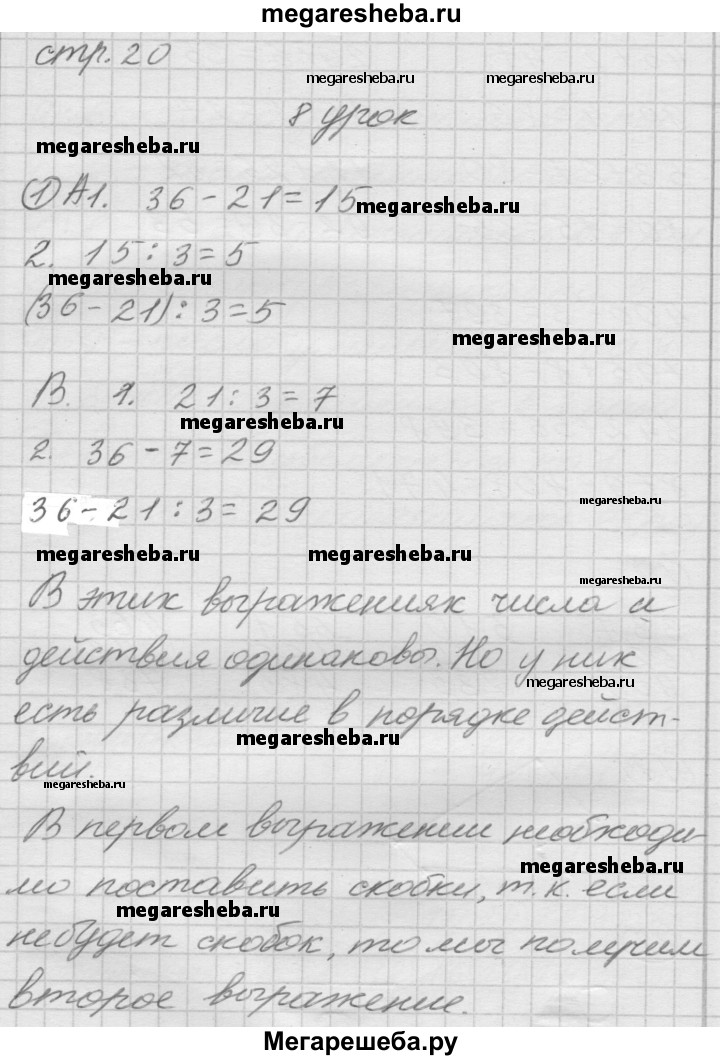 megaresheba.ru
стр. 20
megaresheba.ru megaresheba.ru
8 урок
megaresheba.ru
1) А1. 36 - 21 = 15
megaresheba.ru
2. 15 : 3 = 5
megaresheba.ru
(36 - 21) : 3 = 5
megaresheba.ru
В. 1. 21 : 3 = 7
megaresheba.ru
2. 36 - 7 = 29
megaresheba.ru
36 - 21 : 3 = 29
megaresheba.ru megaresheba.ru
megaresheba.ru
В этих выражениях числа и
действия одинаковы. Но у них
megaresheba.ru
есть различие в порядке дейст-
megaresheba.ru
вий.
megaresheba.ru
В первом выражении необходи-
megaresheba.ru
мо поставить скобки, т.к. если
megaresheba.ru
не будет скобок, то мы получим
второе выражение.
Мегарешеба.ру